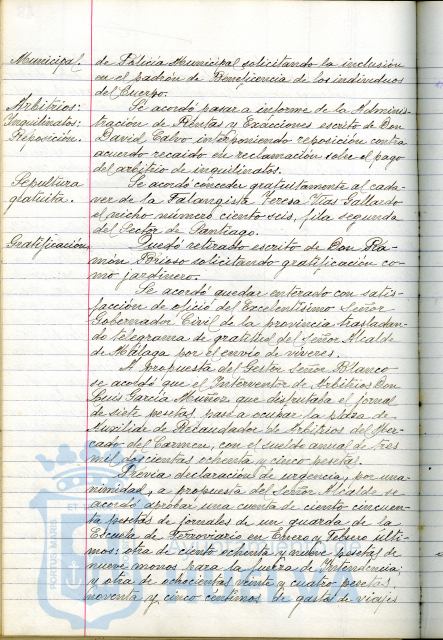 Municipal. de Policía Municipal solicitando la inclusión
en el padrón de Beneficencia de los individuos
del Cuerpo.
Arbitrios: Se acordó pasar a informe de la Adminis-
Inquilinatos: tración de Rentas y Exacciones escrito de Don
Reposición. David Calvo interponiendo reposición contra
acuerdo recaido en reclamación sobre el pago
del arbitrio de inquilinatos.
Sepultura Se acordó conceder gratuitamente al cadá-
gratuita. ver de la Falangista Teresa Vias Gallardo
el nicho número ciento seis, fila segunda
del Sector de Santiago.
Gratificación. Quedó retirado escrito de Don Ra-
món Brioso solicitando gratificación co-
mo jardinero.
Se acordó quedar enterado con satis-
facción de oficio del Excelentísimo Señor
Gobernador Civil de la provincia trasladan-
do telegrama de gratitud del Señor Alcalde
de Málaga por el envio de víveres.
A propuesta del Gestor Señor Blanco
se acordó que el Interventor de Arbitrios Don
Luis García Muñoz que disfrutaba el jornal
de siete pesetas pase a ocupar la plaza de
Auxiliar de Recaudador de Arbitrios del Mer-
cado del Carmen, con el sueldo anual de tres
mil doscientas ochenta y cinco pesetas.
Previa declaración de urgencia, por una-
nimidad, a propuesta del Señor Alcalde se
acordó aprobar una cuenta de ciento cincuen-
ta pesetas de jornales de un guarda de la
Escuela de Ferroviario en Enero y Febrero últi-
mos; otra de ciento ochenta y nueve pesetas de
nueve monos para la fuerza de Intendencia;
y otra de ochocientas veinte y cuatro pesetas
noventa y cinco céntimos de gastos de viajes
PORTUS MARIS ET